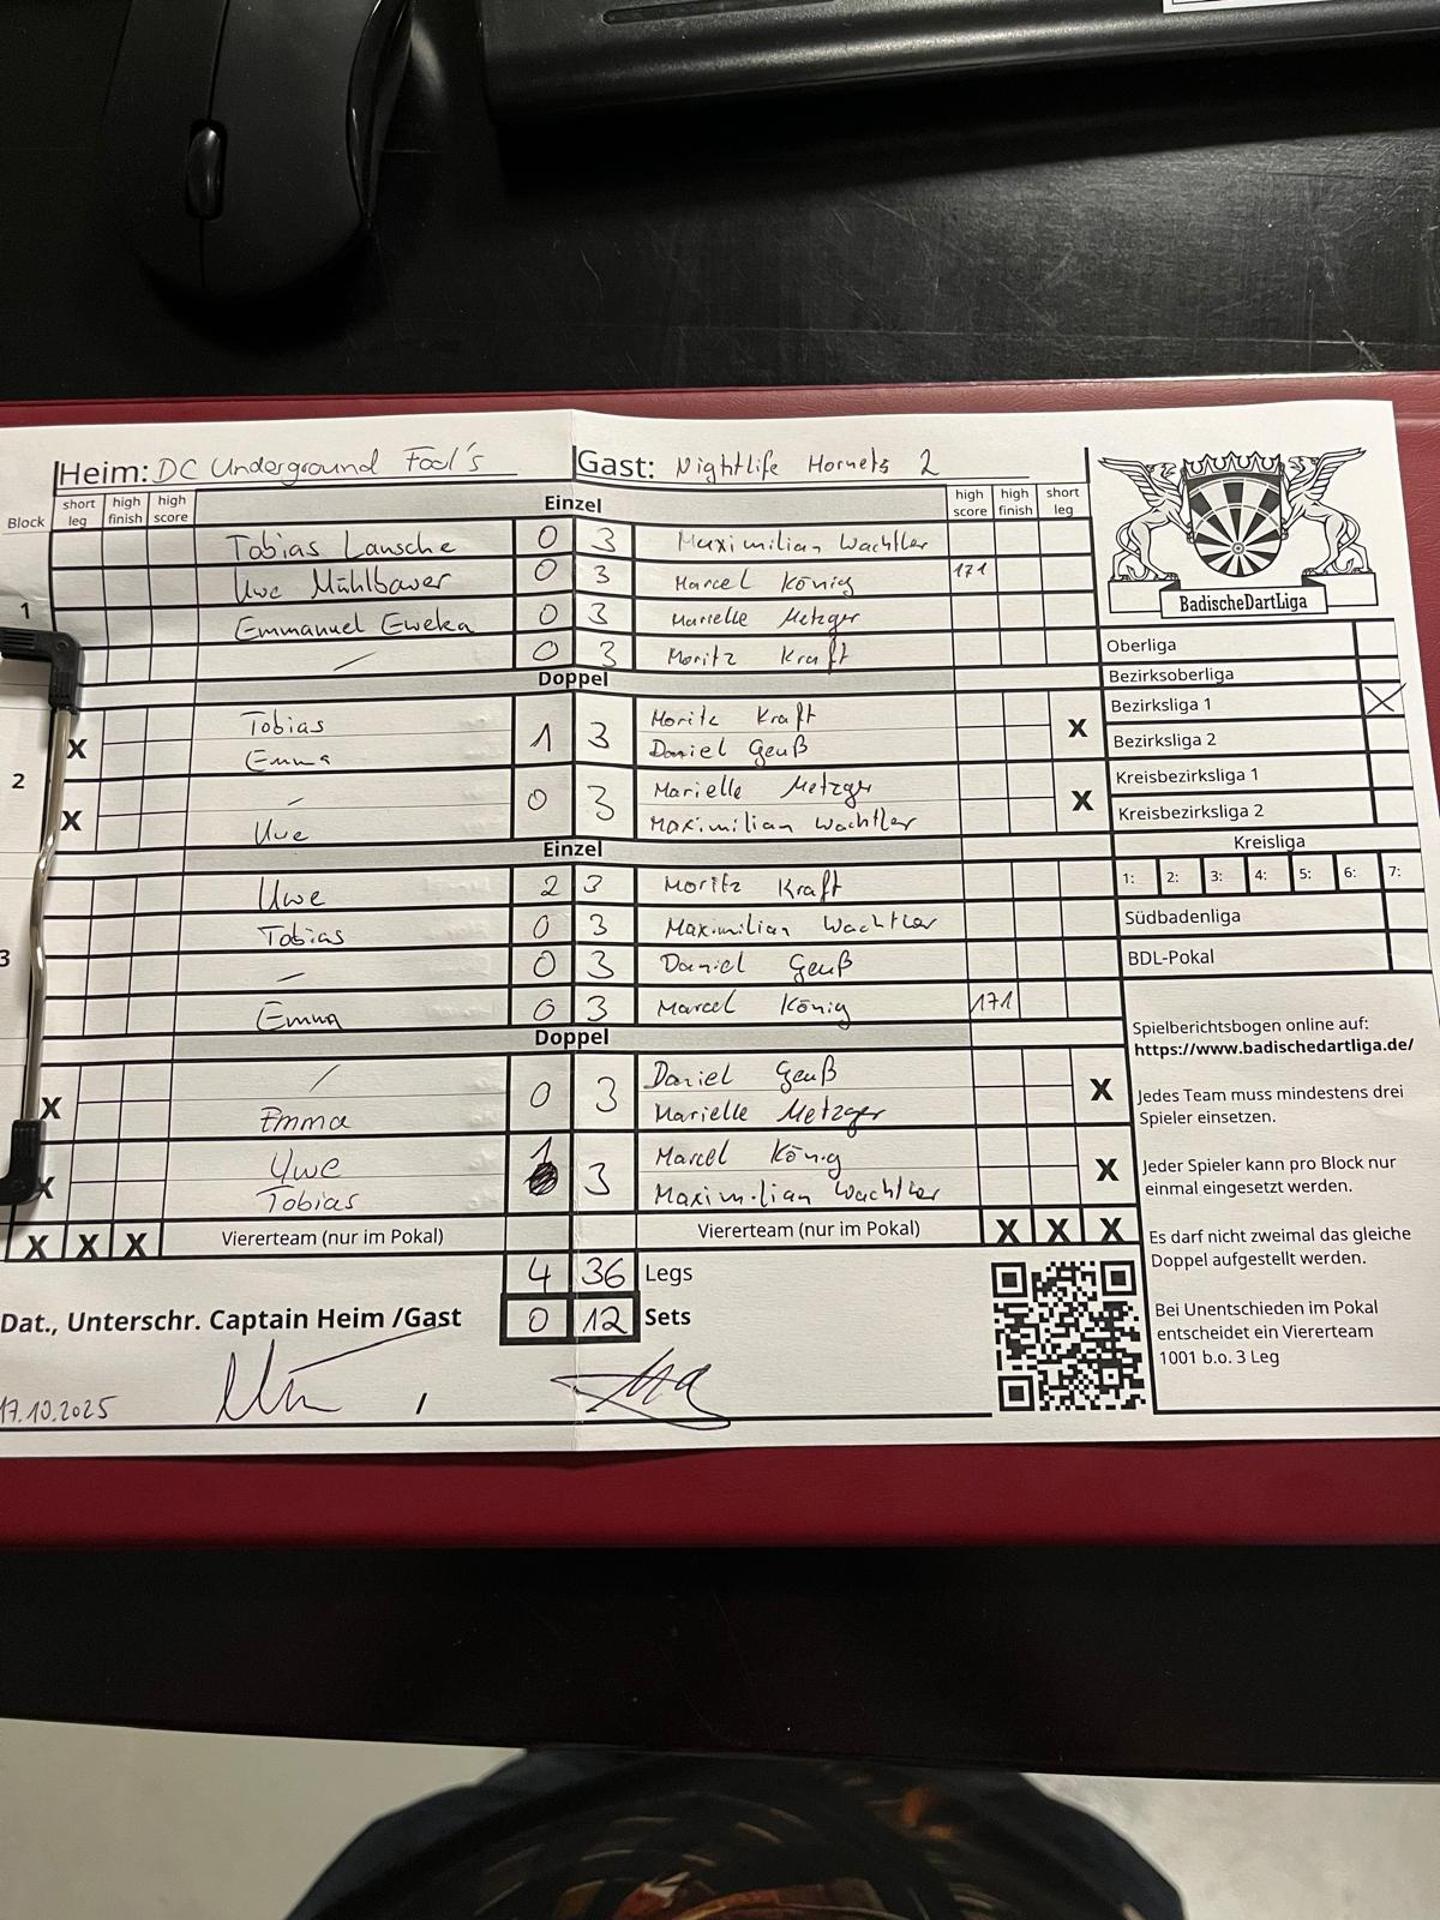 Heim: DC Underground Fool's Gast: Nightlife Hornets 2
Block short leg high finish high score Einzel high score high finish short leg
Tobias Lausche 0 3 Maximilian Wachtler
Uwe Mühlbauer 0 3 Marcel König 171
1 Emmanuel Eweka 0 3 Marielle Metzger
/ 0 3 Moritz Kraft
Doppel
Tobias Moritz Kraft
X 1 3 X
Emma Daniel Geuß
2
/ Marielle Metzger
X 0 3 X
Uwe Maximilian Wachtler
Einzel
Uwe 2 3 Moritz Kraft
Tobias 0 3 Maximilian Wachtler
3 / 0 3 Daniel Geuß
Emma 0 3 Marcel König 171
Doppel
/ Daniel Geuß
X 0 3 X
Emma Marielle Metzger
Uwe Marcel König
X 1 3 X
Tobias Maximilian Wachtler
X X X Viererteam (nur im Pokal) Viererteam (nur im Pokal) X X X
4 36 Legs
Dat., Unterschr. Captain Heim /Gast 0 12 Sets
17.10.2025 /
BadischeDartLiga
Oberliga
Bezirksoberliga
Bezirksliga 1 X
Bezirksliga 2
Kreisbezirksliga 1
Kreisbezirksliga 2
Kreisliga
1: 2: 3: 4: 5: 6: 7:
Südbadenliga
BDL-Pokal
Spielberichtsbogen online auf:
https://www.badischedartliga.de/
Jedes Team muss mindestens drei
Spieler einsetzen.
Jeder Spieler kann pro Block nur
einmal eingesetzt werden.
Es darf nicht zweimal das gleiche
Doppel aufgestellt werden.
Bei Unentschieden im Pokal
entscheidet ein Viererteam
1001 b.o. 3 Leg